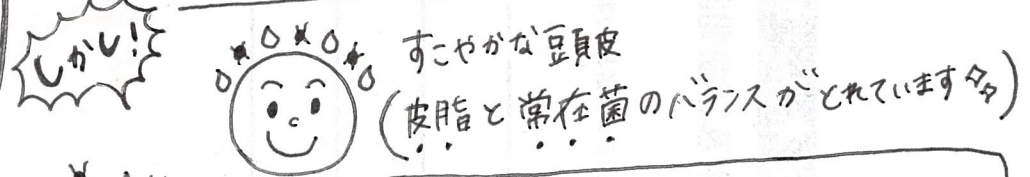 しかし!
すこやかな頭皮
(皮脂と常在菌のバランスがとれています)